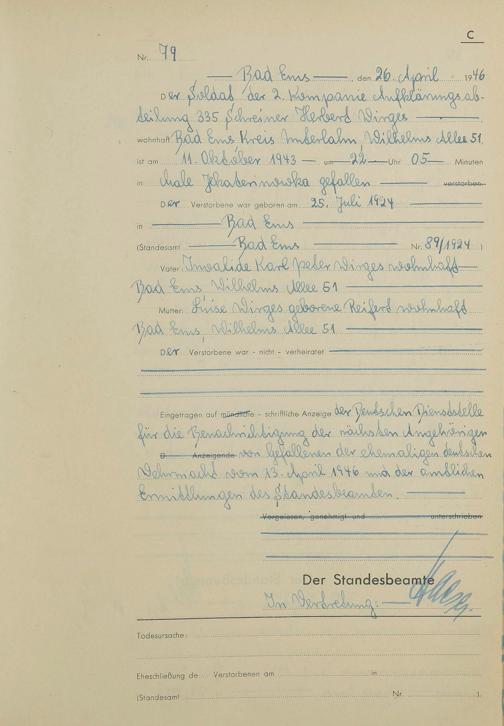 C
Nr. 79
Bad Ems, den 26. April 1946
Der Soldat der 2. Kompanie Aufklärungsab-
teilung 335 Schreiner Herbert Dirges
wohnhaft Bad Ems Kreis Unterlahn, Wilhelms Allee 51
ist am 11. Oktober 1943 um 22 Uhr 05 Minuten
in Male Jekaterinowka gefallen verstorben.
Der Verstorbene war geboren am 25. Juli 1924
in Bad Ems
(Standesamt Bad Ems Nr. 89/1924)
Vater: Invalide Karl Peter Dirges wohnhaft
Bad Ems Wilhelms Allee 51
Mutter: Luise Dirges geborene Reifert wohnhaft
Bad Ems, Wilhelms Allee 51
Der Verstorbene war - nicht - verheiratet
Eingetragen auf mündliche - schriftliche Anzeige der Deutschen Dienststelle
für die Benachrichtigung der nächsten Angehörigen
D Anzeigende von Gefallenen der ehemaligen deutschen
Wehrmacht vom 13. April 1946 und der amtlichen
Ermittlungen des Standesbeamten.
Vorgelesen, genehmigt und unterschrieben
Der Standesbeamte
In Vertretung:
Todesursache:
Eheschließung de Verstorbenen am in
(Standesamt Nr. ).